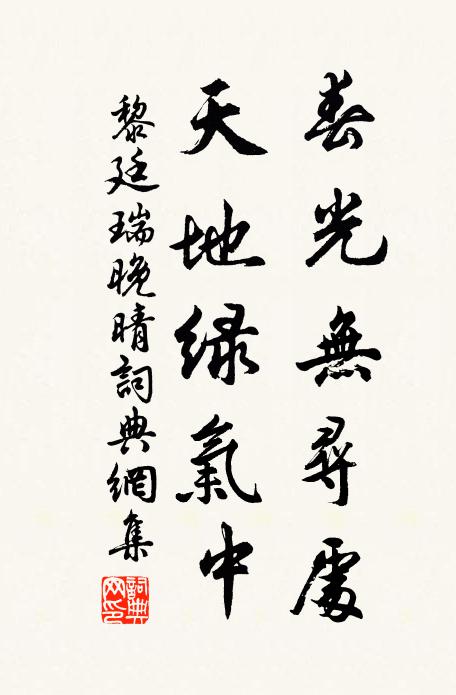 春光無尋處
天地綠氣中
黎廷瑞晚晴詞典網集
詞典
网印